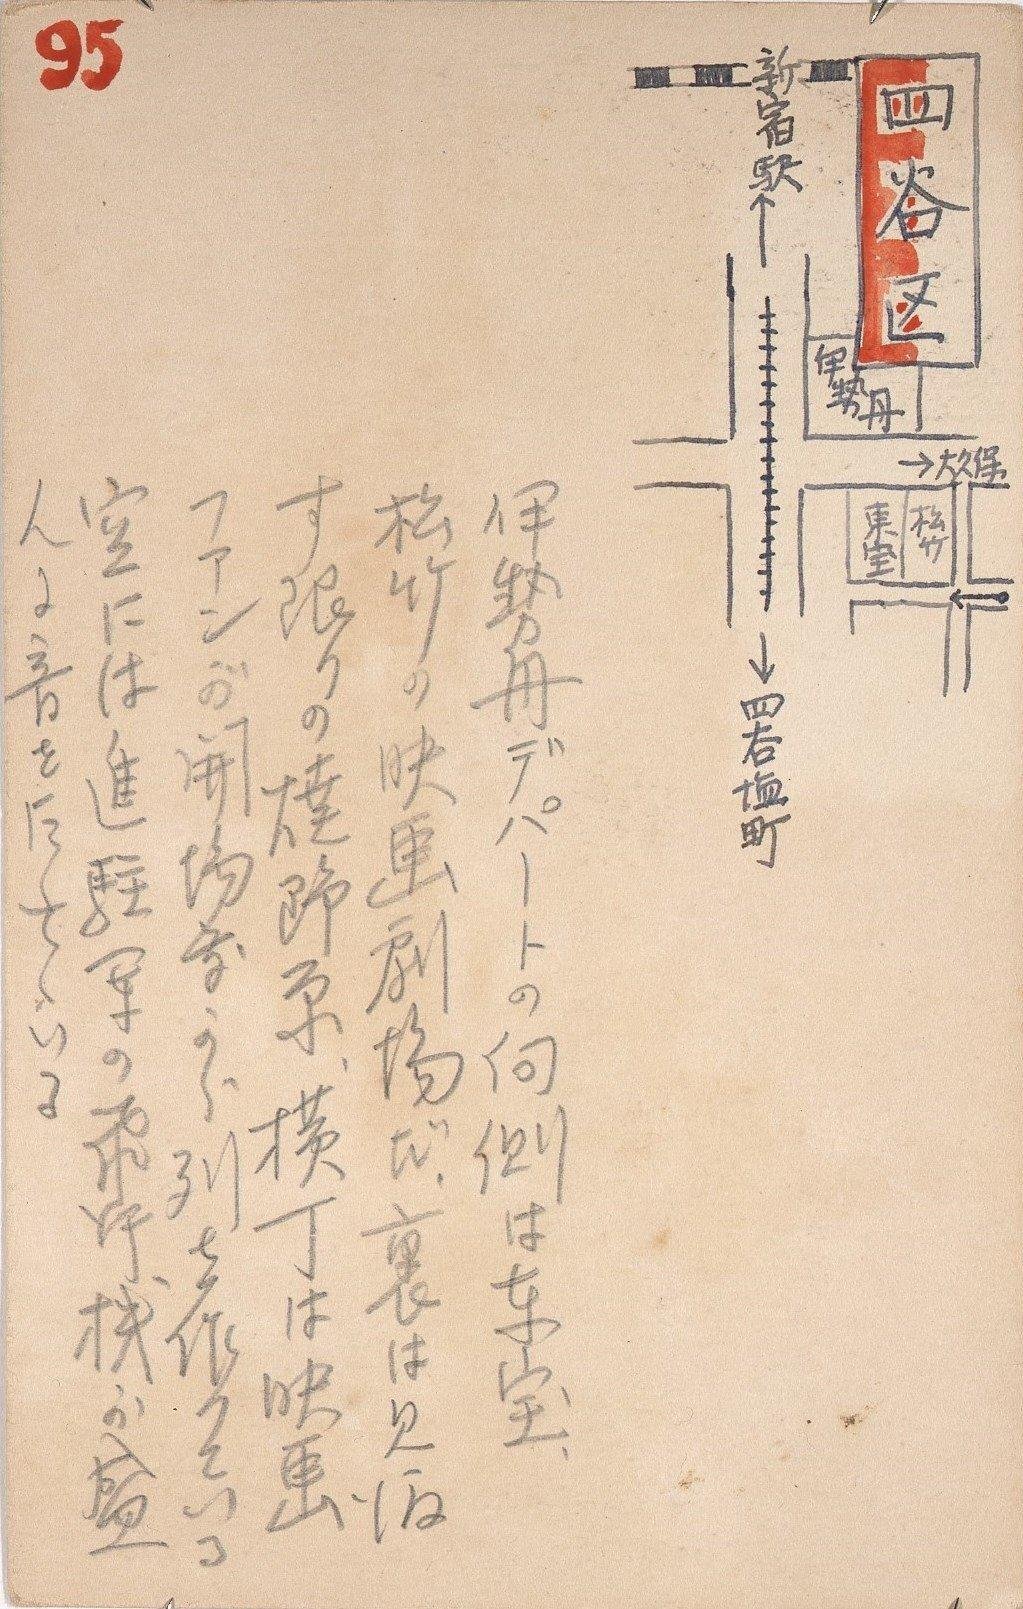 95
四谷区
新宿駅
伊勢丹
大久保
東宝
松竹
四谷塩町
伊勢丹デパートの向側は東宝、
松竹の映画劇場だ、裏は見渡
す限りの焼野原、横丁は映画
ファンが開場前から列を作っている
空には進駐軍の飛行機が盛
んに音をたてゝいる